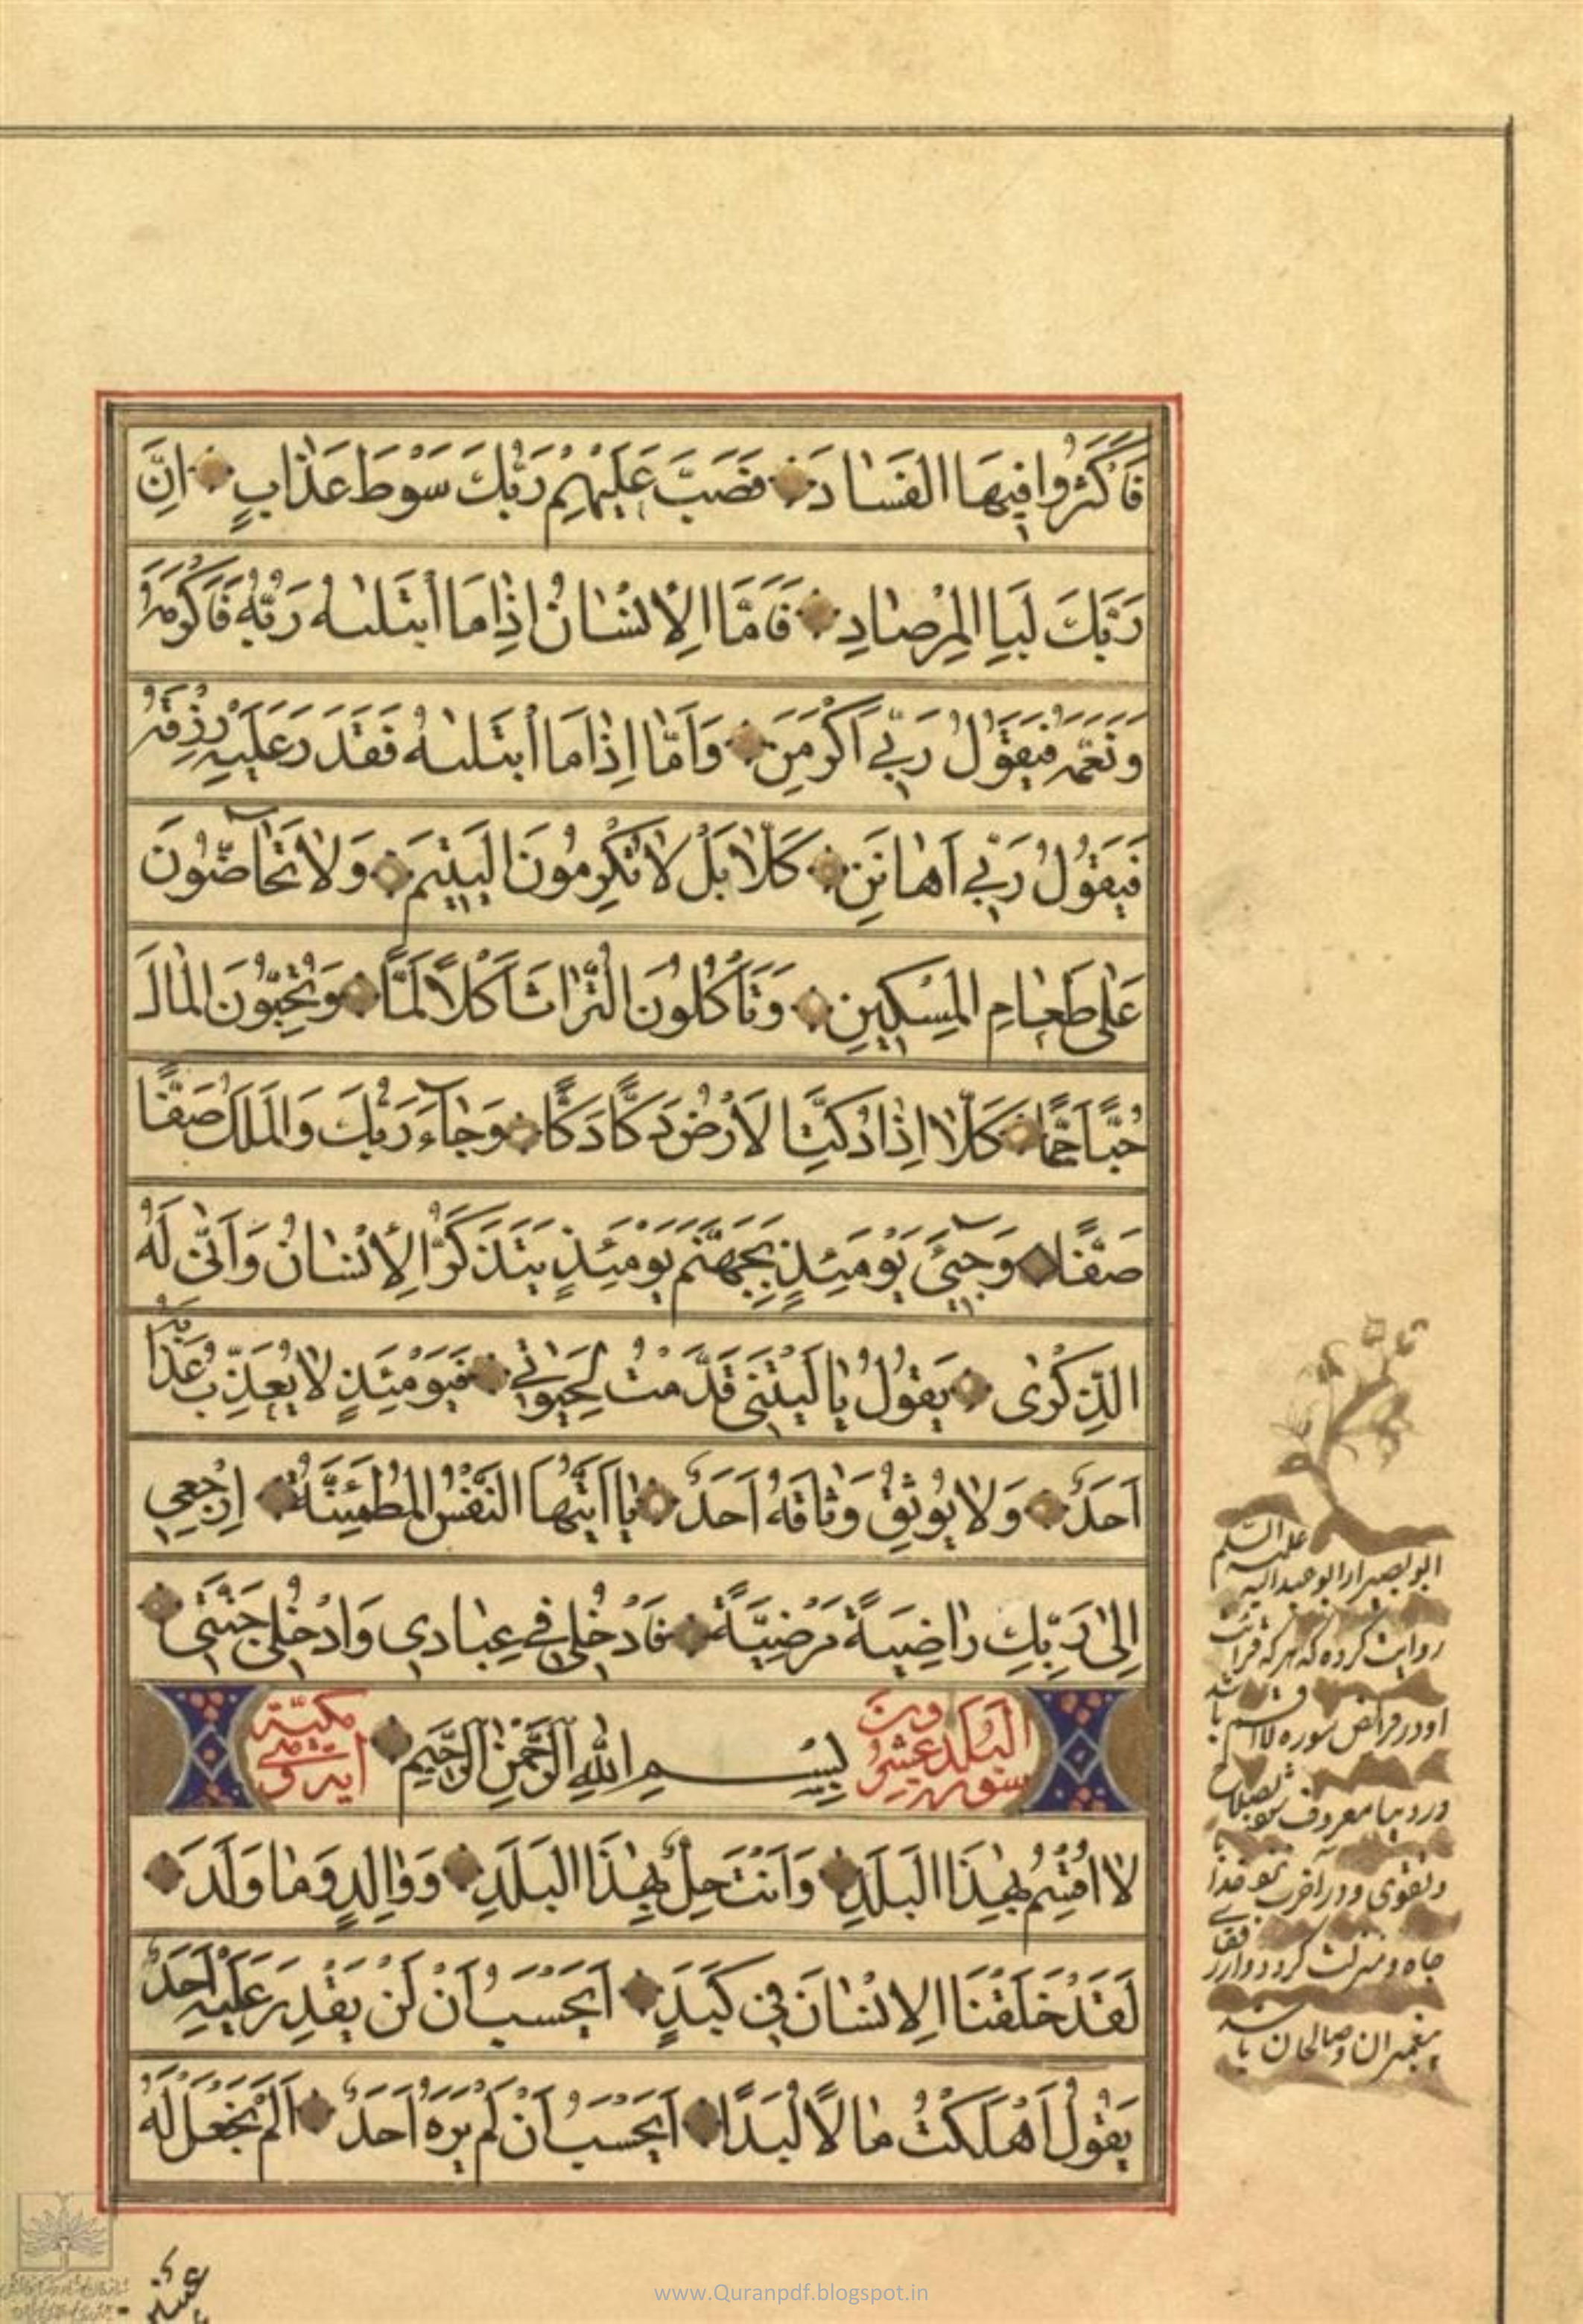 فَاَكْثَرُوا فِيهَا الْفَسَادَ فَصَبَّ عَلَيْهِمْ رَبُّكَ سَوْطَ عَذَابٍ اِنَّ
رَبَّكَ لَبِا الْمِرْصَادِ فَاَمَّا الْاِنْسَانُ اِذَا مَا ابْتَلٰيهُ رَبُّهُ فَاَكْرَمَهُ
وَنَعَّمَهُ فَيَقُولُ رَبِّي اَكْرَمَنِ وَاَمَّا اِذَا مَا ابْتَلٰيهُ فَقَدَرَ عَلَيْهِ رِزْقَهُ
فَيَقُولُ رَبِّي اَهَانَنِ كَلَّا بَلْ لَا تُكْرِمُونَ الْيَتِيمَ وَلَا تَحَاضُّونَ
عَلٰى طَعَامِ الْمِسْكِينِ وَتَأْكُلُونَ التُّرَاثَ اَكْلًا لَمًّا وَتُحِبُّونَ الْمَالَ
حُبًّا جَمًّا كَلَّا اِذَا دُكَّتِ الْاَرْضُ دَكًّا دَكًّا وَجَاءَ رَبُّكَ وَالْمَلَكُ صَفًّا
صَفًّا وَجِيءَ يَوْمَئِذٍ بِجَهَنَّمَ يَوْمَئِذٍ يَتَذَكَّرُ الْاِنْسَانُ وَاَنّٰى لَهُ
الذِّكْرٰى يَقُولُ يَا لَيْتَنِي قَدَّمْتُ لِحَيٰوتِي فَيَوْمَئِذٍ لَا يُعَذِّبُ عَذَابَهُ
اَحَدٌ وَلَا يُوثِقُ وَثَاقَهُ اَحَدٌ يَا اَيَّتُهَا النَّفْسُ الْمُطْمَئِنَّةُ اِرْجِعِي
اِلٰى رَبِّكِ رَاضِيَةً مَرْضِيَّةً فَادْخُلِي فِي عِبَادِي وَادْخُلِي جَنَّتِي
سورة البلد عشرون بِسْمِ اللّٰهِ الرَّحْمٰنِ الرَّحِيمِ اية مكية
لَا اُقْسِمُ بِهٰذَا الْبَلَدِ وَاَنْتَ حِلٌّ بِهٰذَا الْبَلَدِ وَوَالِدٍ وَمَا وَلَدَ
لَقَدْ خَلَقْنَا الْاِنْسَانَ فِي كَبَدٍ اَيَحْسَبُ اَنْ لَنْ يَقْدِرَ عَلَيْهِ اَحَدٌ
يَقُولُ اَهْلَكْتُ مَالًا لُبَدًا اَيَحْسَبُ اَنْ لَمْ يَرَهُ اَحَدٌ اَلَمْ نَجْعَلْ لَهُ
ابو بصير از ابو عبداله عليه السلم
روايت كرده كه هر كه قرائت
او در فرائض سوره لا اقسم باشد
در دنيا معروف شود بصلاح
و تقوى و در آخرت نزد خدا با
جاه و منزلت گردد و از رفقاى
پيغمبران و صالحان باشد
عينين
www.Quranpdf.blogspot.in